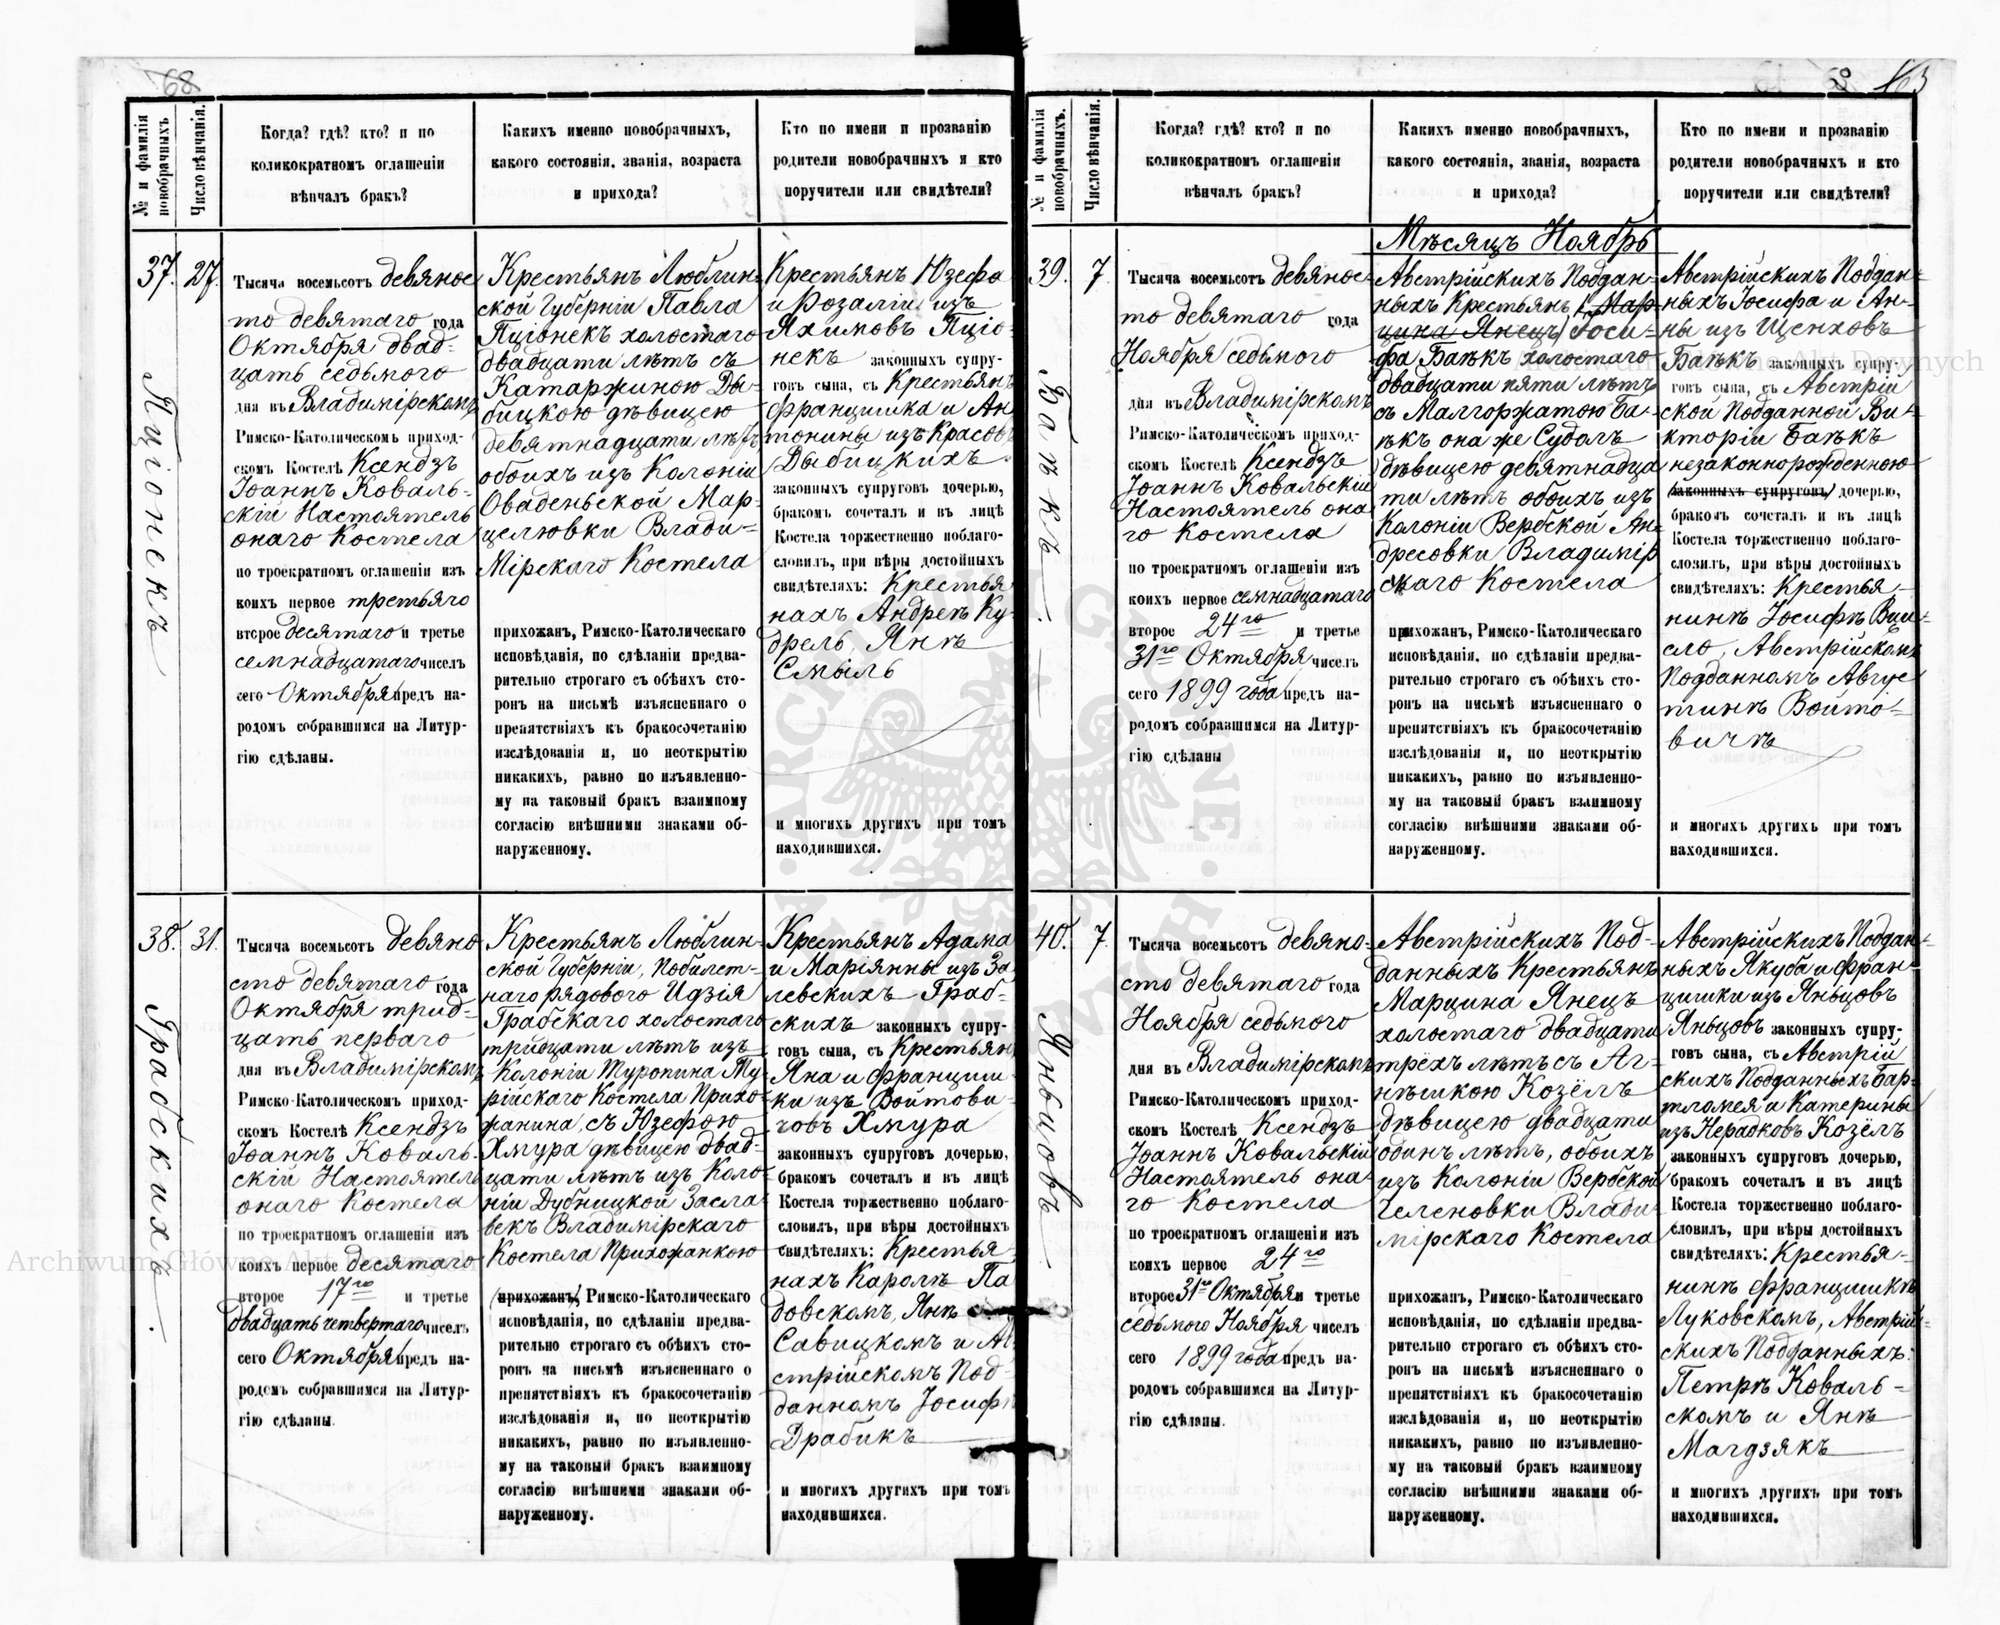 68
№ и фамилія новобрачныхъ.
Число вѣнчанія.
Когда? гдѣ? кто? и по
коликократномъ оглашеніи
вѣнчалъ бракъ?
Какихъ именно новобрачныхъ,
какого состоянія, званія, возраста
и прихода?
Кто по имени и прозванію
родители новобрачныхъ и кто
поручители или свидѣтели?
37.
27.
Пціонскъ
Тысяча восемьсотъ девянос
то девятаго года
Октября двад-
цать седьмого
дня въ Владимірскомъ
Римско-Католическомъ приход-
скомъ Костелѣ Ксендзъ
Іоаннъ Коваль-
скій Настоятель
онаго Костела
по троекратномъ оглашеніи изъ
коихъ первое третьяго
второе десятаго и третье
семнадцатаго чиселъ
сего Октября предъ на-
родомъ собравшимся на Литур-
гію сдѣланы.
Крестьянъ Люблин-
ской Губерніи Павла
Пціонекъ холостаго
двадцати лѣтъ съ
Катаржиною Ды-
бицкою дѣвицею
девятнадцати лѣтъ,
обоихъ изъ Колоніи
Оваденьской Мар-
целювки Влади-
мірскаго Костела
прихожанъ, Римско-Католическаго
исповѣданія, по сдѣланіи предва-
рительно строгаго съ обѣихъ сто-
ронъ на письмѣ изъясненнаго о
препятствіяхъ къ бракосочетанію
изслѣдованія и, по неоткрытію
никакихъ, равно по изъявленно-
му на таковый бракъ взаимному
согласію внѣшними знаками об-
наруженному.
Крестьянъ Юзефа
и Розаліи изъ
Яхимовъ Пціо-
некъ законныхъ супру-
говъ сына, съ Крестьянъ
Францишка и Ан
тонины изъ Красовъ
Дыбицкихъ
законныхъ супруговъ дочерью,
бракомъ сочеталъ и въ лицѣ
Костела торжественно поблаго-
словилъ, при вѣры достойныхъ
свидѣтеляхъ: Крестья
нахъ Андреѣ Ку-
дрель, Янѣ
Смыль
и многихъ другихъ при томъ
находившихся.
38.
31.
Грабскихъ.
Тысяча восемьсотъ девяно
сто девятаго года
Октября трид-
цать перваго
дня въ Владимірскомъ
Римско-Католическомъ приход-
скомъ Костелѣ Ксендзъ
Іоаннъ Коваль-
скій Настоятель
онаго Костела
по троекратномъ оглашеніи изъ
коихъ первое десятаго
второе 17го и третье
двадцать четвертаго чиселъ
сего Октября предъ на-
родомъ собравшимся на Литур-
гію сдѣланы.
Крестьянъ Люблин-
ской Губерніи, Побилет-
наго рядового Идзія
Грабскаго холостаго
тридцати лѣтъ изъ
Колоніи Туропина Ту-
рійскаго Костела Прихо-
жанина, съ Юзефою
Хмура дѣвицею двад-
цати лѣтъ изъ Коло-
ніи Дубницкой Засла-
векъ Владимірскаго
Костела Прихожанкою
(прихожанъ), Римско-Католическаго
исповѣданія, по сдѣланіи предва-
рительно строгаго съ обѣихъ сто-
ронъ на письмѣ изъясненнаго о
препятствіяхъ къ бракосочетанію
изслѣдованія и, по неоткрытію
никакихъ, равно по изъявленно-
му на таковый бракъ взаимному
согласію внѣшними знаками об-
наруженному.
Крестьянъ Адама
и Маріянны изъ За
левскихъ Граб-
скихъ законныхъ супру-
говъ сына, съ Крестьян
Яна и Францииш-
ки изъ Войтови-
човъ Хмура
законныхъ супруговъ дочерью,
бракомъ сочеталъ и въ лицѣ
Костела торжественно поблаго-
словилъ, при вѣры достойныхъ
свидѣтеляхъ: Крестья-
нахъ Каролѣ Па
довскомъ, Янѣ
Савицкомъ и Ав
стрійскомъ Под-
данномъ Іосифѣ
Драбикъ
и многихъ другихъ при томъ
находившихся.
№ и фамилія новобрачныхъ.
Число вѣнчанія.
Когда? гдѣ? кто? и по
коликократномъ оглашеніи
вѣнчалъ бракъ?
Какихъ именно новобрачныхъ,
какого состоянія, званія, возраста
и прихода?
Кто по имени и прозванію
родители новобрачныхъ и кто
поручители или свидѣтели?
Мѣсяцъ Ноябрь
39.
7
Бапкъ.
Тысяча восемьсотъ девянос-
то девятаго года
Ноября седьмого
дня въ Владимірскомъ
Римско-Католическомъ приход-
скомъ Костелѣ Ксендзъ
Іоаннъ Ковальскій
Настоятель она
го Костела
по троекратномъ оглашеніи изъ
коихъ первое семнадцатаго
второе 24го и третье
31го Октября чиселъ
сего 1899 года предъ на-
родомъ собравшимся на Литур-
гію сдѣланы
Австрійскихъ Поддан-
ныхъ Крестьянъ (Мар-
цина Янецъ) Іоси-
фа Баѣкъ холостаго
двадцати пяти лѣтъ
съ Малгоржатою Ба-
ѣкъ она же Судолъ
дѣвицею девятнадца
ти лѣтъ обоихъ изъ
Колоніи Вербской Ан-
дресовки Владимір
скаго Костела
прихожанъ, Римско-Католическаго
исповѣданія, по сдѣланіи предва-
рительно строгаго съ обѣихъ сто-
ронъ на письмѣ изъясненнаго о
препятствіяхъ къ бракосочетанію
изслѣдованія и, по неоткрытію
никакихъ, равно по изъявленно-
му на таковый бракъ взаимному
согласію внѣшними знаками об-
наруженному.
Австрійскихъ Поддан-
ныхъ Іосифа и Ан-
ны изъ Щенховъ
Баѣкъ законныхъ супру-
говъ сына, съ Австрій
ской Подданной Ви-
кторіи Баѣкъ
незаконнорожденною
(законныхъ супруговъ) дочерью,
бракомъ сочеталъ и въ лицѣ
Костела торжественно поблаго-
словилъ, при вѣры достойныхъ
свидѣтеляхъ: Крестья-
нинѣ Іосифѣ
Австрійскомъ
Подданномъ Авгус
тинѣ Войто-
вичѣ
и многихъ другихъ при томъ
находившихся.
40.
7.
Яньцовъ.
Тысяча восемьсотъ девяно-
сто девятаго года
Ноября седьмого
дня въ Владимірскомъ
Римско-Католическомъ приход-
скомъ Костелѣ Ксендзъ
Іоаннъ Ковальскій
Настоятель она-
го Костела
по троекратномъ оглашеніи изъ
коихъ первое 24го
второе 31го Октября и третье
седьмого Ноября чиселъ
сего 1899 года предъ на-
родомъ собравшимся на Литур-
гію сдѣланы.
Австрійскихъ Под-
данныхъ Крестьянъ
Марцина Янецъ
холостаго двадцати
трёхъ лѣтъ съ Аг-
нѣшкою Козёлъ
дѣвицею двадцати
одинъ лѣтъ, обоихъ
изъ Колоніи Вербской
Геленовки Влади
мірскаго Костела
прихожанъ, Римско-Католическаго
исповѣданія, по сдѣланіи предва-
рительно строгаго съ обѣихъ сто-
ронъ на письмѣ изъясненнаго о
препятствіяхъ къ бракосочетанію
изслѣдованія и, по неоткрытію
никакихъ, равно по изъявленно-
му на таковый бракъ взаимному
согласію внѣшними знаками об-
наруженному.
Австрійскихъ Поддан-
ныхъ Якуба и Фран-
цишки изъ Яньцовъ
Яньцовъ законныхъ супру-
говъ сына, съ Австрій
скихъ Подданныхъ Бар-
тломея и Катерины
изъ Нерадковъ Козёлъ
законныхъ супруговъ дочерью,
бракомъ сочеталъ и въ лицѣ
Костела торжественно поблаго-
словилъ, при вѣры достойныхъ
свидѣтеляхъ: Крестья-
нинѣ Францишкѣ
Луковскомъ, Австрій-
скихъ Подданныхъ:
Петрѣ Коваль-
скомъ и Янѣ
Магдзякъ
и многихъ другихъ при томъ
находившихся.
Archiwum Główne Akt Dawnych
Archiwum Główne Akt Dawnych
ARCHIWUM GŁÓWNE AKT DAWNYCH